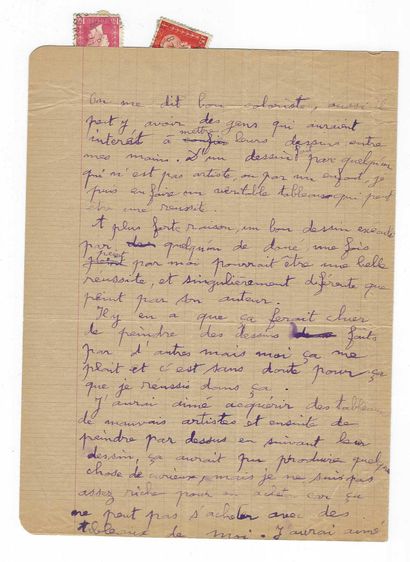 On me dit bon coloriste, aussi il
peut y avoir des gens qui auraient
interêt à mettre leurs dessins entre
mes mains. D'un dessin par quelqu'un
qui n'est pas artiste ou par un enfant je
puis en faire un veritable tableau qui peut
être une reussite.
A plus forte raison, un bon dessin executé
par quelqu'un de doué, une fois
peint par moi pourrait être une belle
réussite, et singulièrement diférente que
peint par son auteur.
Il y en a que ça ferait chier
de peindre des dessins faits
par d'autres mais moi ça me
plait et c'est sans doute pour ça
que je reussis dans ça.
J'aurai aimé acquérir des tableaux
de mauvais artistes et ensuite de
peindre par dessus en suivant leur
dessin, ça aurait pu produire quelque
chose de curieux, mais je ne suis pas
assez riche pour en acheter car ça
ne peut pas s'acheter avec des
tableaux de moi. J'aurai aimé